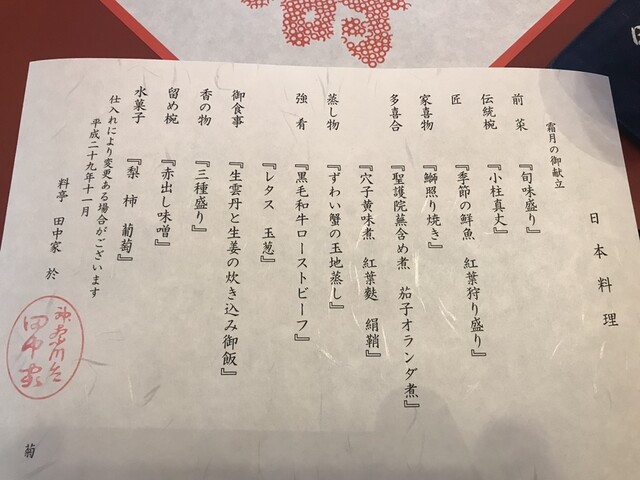 日本料理
霜月の御献立
前菜 『旬味盛り』
伝統椀 『小柱真丈』
匠 『季節の鮮魚 紅葉狩り盛り』
家喜物 『鰤照り焼き』
多喜合 『聖護院蕪含め煮 茄子オランダ煮』
『穴子黄味煮 紅葉麩 絹鞘』
蒸し物 『ずわい蟹の玉地蒸し』
強肴 『黒毛和牛ローストビーフ』
『レタス 玉葱』
御食事 『生雲丹と生姜の炊き込み御飯』
香の物 『三種盛り』
留め椀 『赤出し味噌』
水菓子 『梨 柿 葡萄』
仕入れにより変更ある場合がございます
平成二十九年十一月
料亭 田中家 於
神奈川台
田中家
菊